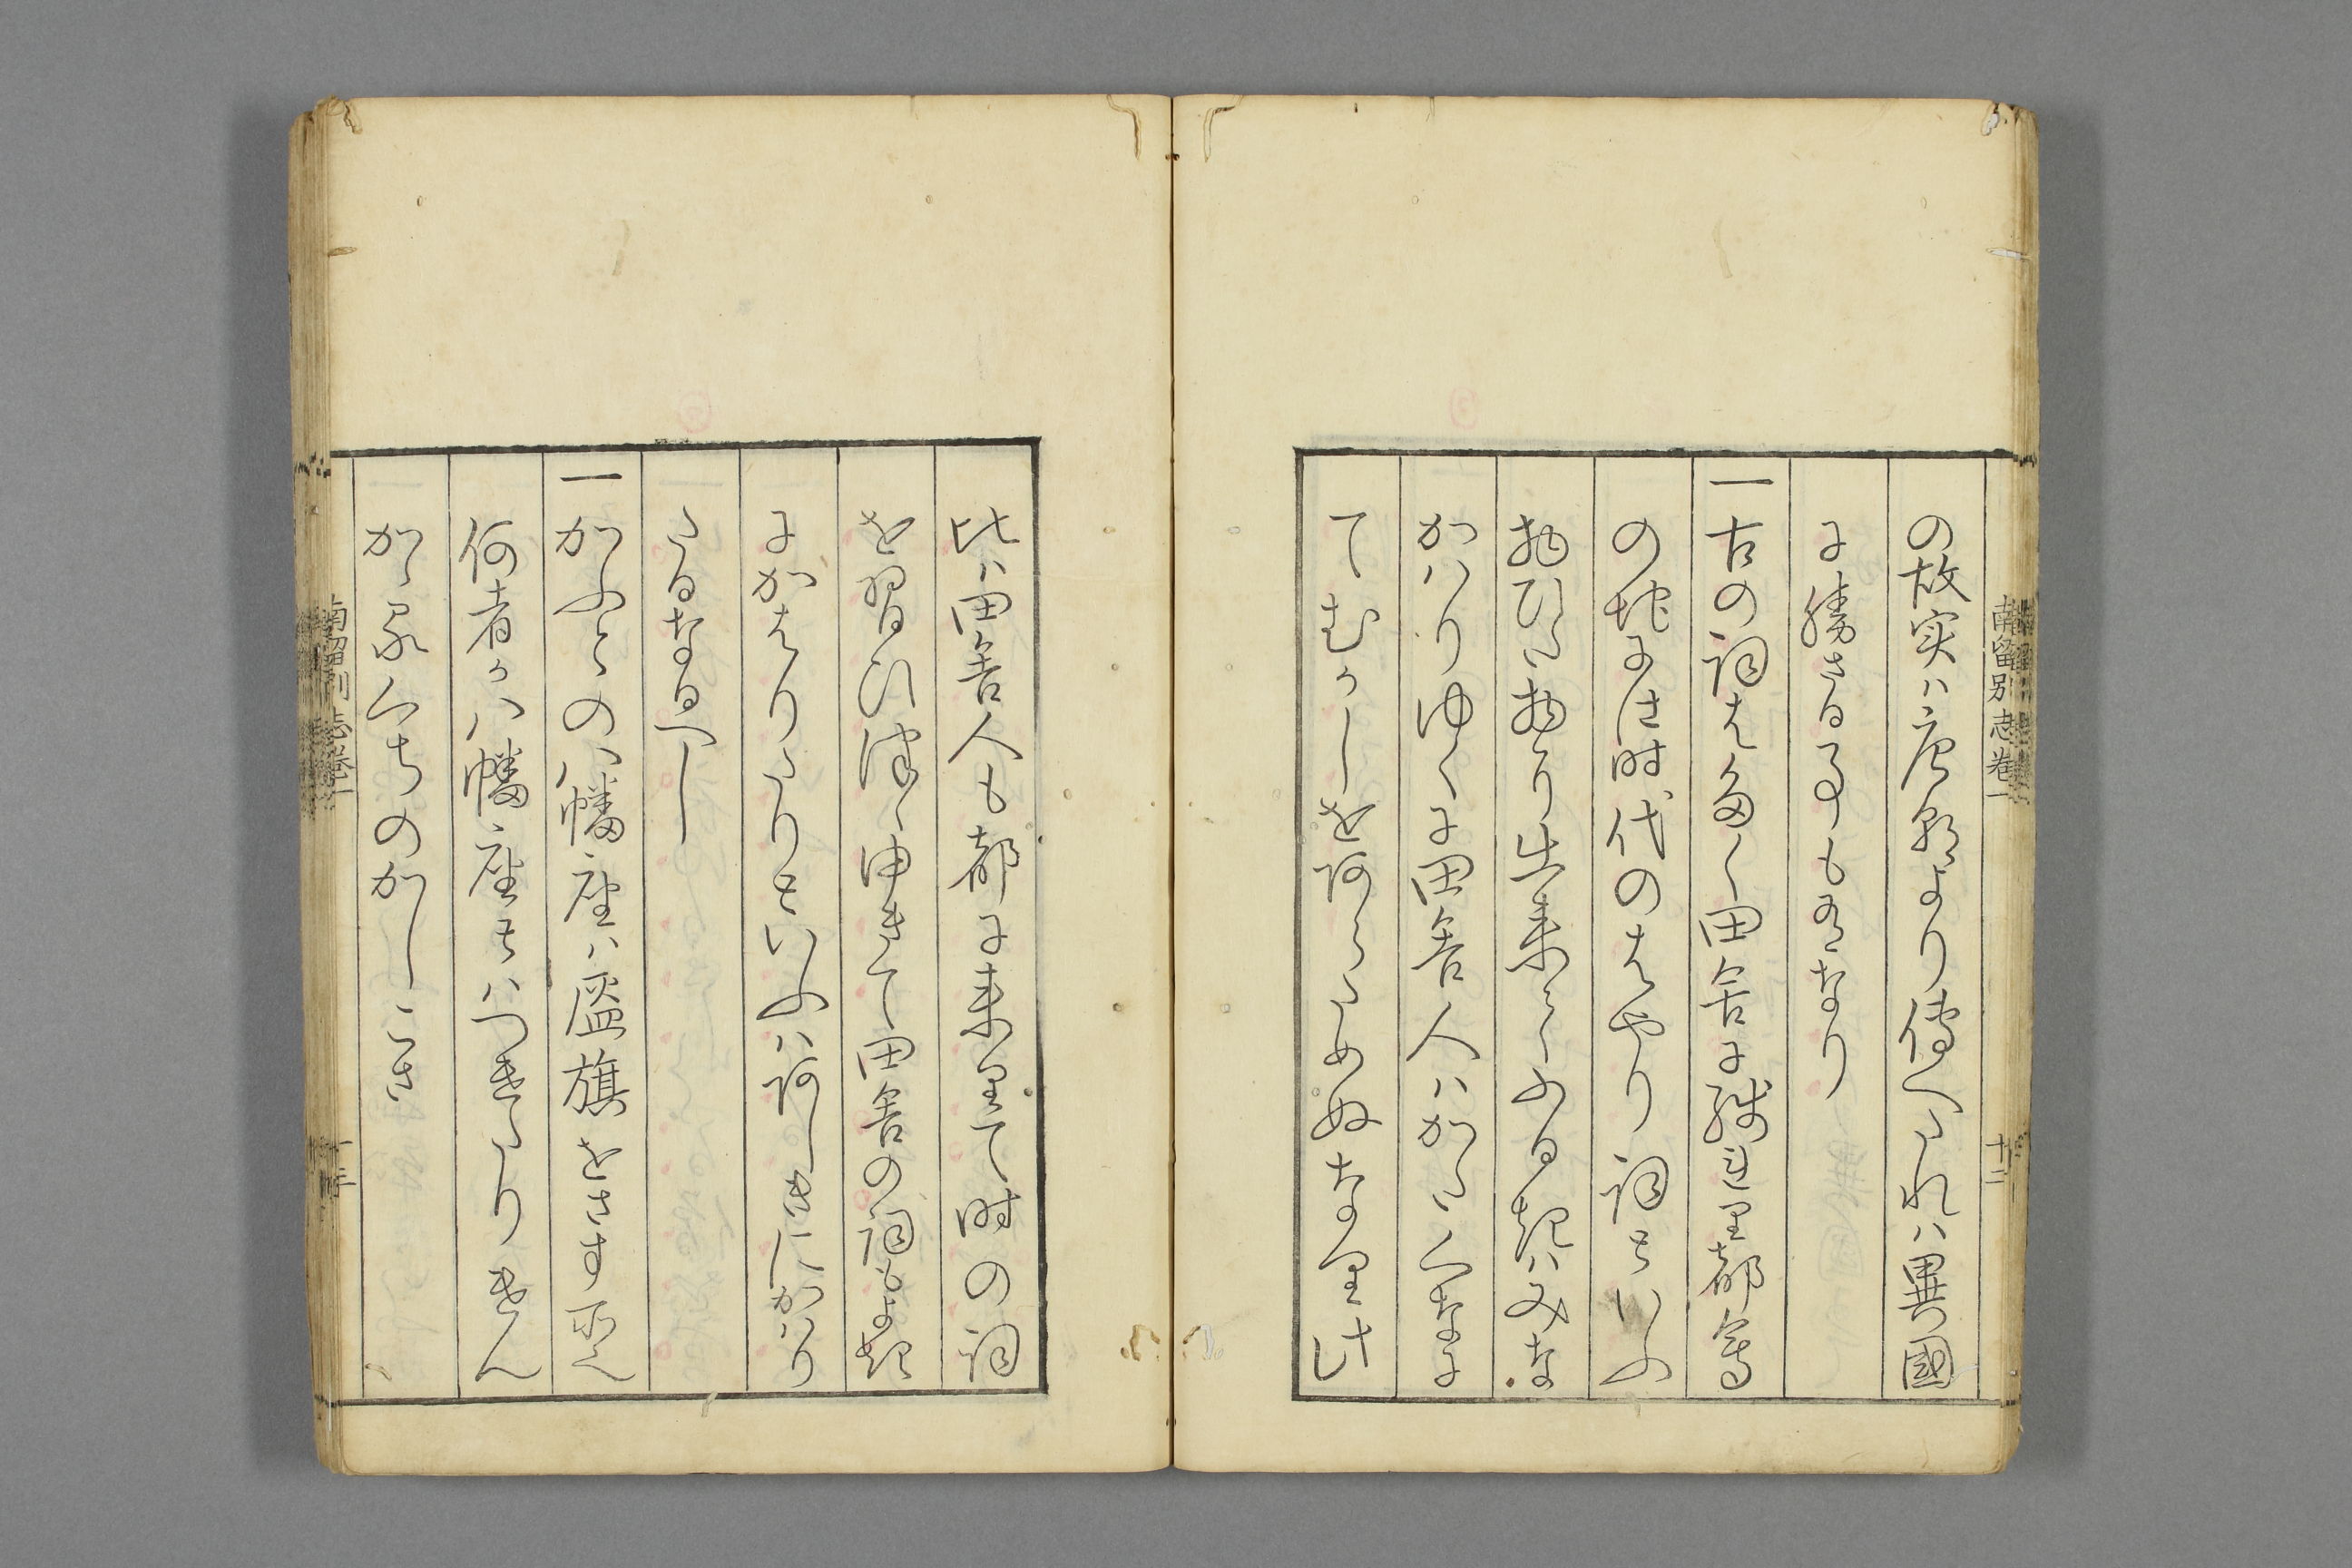 南留別志卷一
十二
の故実ハ唐朝より傳へたれハ異國
に勝さる事も有なり
一古の詞は多く田舎に残れり都會
の地にハ時代のはやり詞といふ
物ひた物に出来てふるきハみな
かハりゆくに田舎人ハかたくなに
てむかしをあらためぬなり此
比ハ田舎人も都に来りて時の詞
を習ひつゝゆきて田舎の詞もよき
にかはりたりといふハあしきにかハり
たるなるへし
一かふとの八幡座ハ盔旗をさす所を
何者か八幡座とハつけたりけん
かゝるくちのかしこさ
南留別志卷一
十三